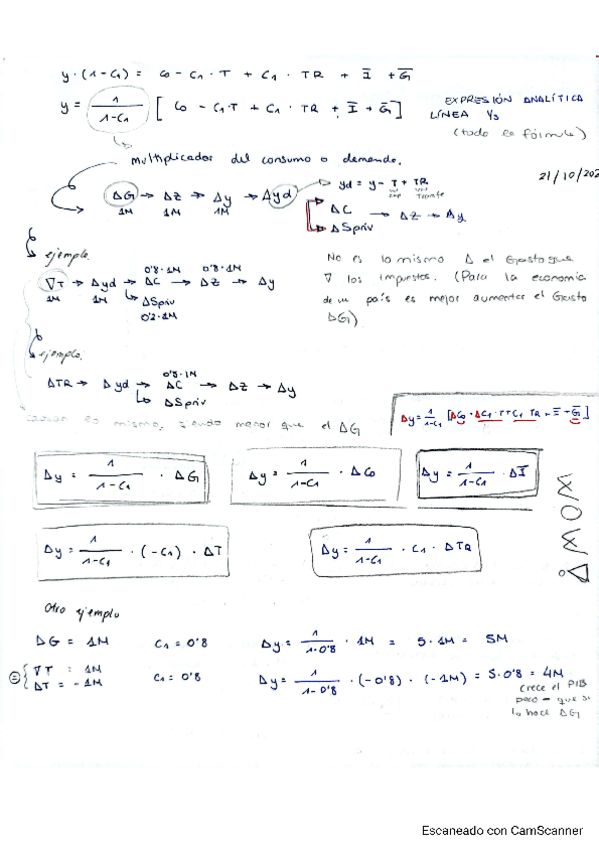 y · (1-C1) = C0 - C1 · T + C1 · TR + I̅ + G̅
y = 1/1-C1 [ C0 - C1·T + C1 · TR + I̅ + G̅ ] EXPRESIÓN ANALÍTICA
LÍNEA Y3
(toda la fórmula)
multiplicador del consumo o demanda.
21/10/202
ΔG → ΔZ → Δy → Δyd → yd = y - T + TR
1M 1M 1M
ΔC → ΔZ → Δy
ΔSpriv
ejemplo.
0'8·1M 0'8·1M
∇T → Δyd → ΔC → ΔZ → Δy
1M 1M ΔSpriv
0'2·1M
No es lo mismo Δ el Gasto que
∇ los impuestos. (Para la economia
de un país es mejor aumentar el Gasto
ΔG)
ejemplo.
0'8·1M
ΔTR → Δyd → ΔC → ΔZ → Δy
ΔSpriv
lo mismo, siendo menor que el ΔG
Δy = 1/1-C1 [ΔC0 - ΔC1·T + C1 TR + I̅ + G̅]
Δy = 1/1-C1 · ΔG
Δy = 1/1-C1 · ΔC0
Δy = 1/1-C1 · ΔI̅
WOW!
Δy = 1/1-C1 · (-C1) · ΔT
Δy = 1/1-C1 · C1 · ΔTR
Otro ejemplo
ΔG = 1M C1 = 0'8 Δy = 1/1-0'8 · 1M = 5·1M = 5M
∇T = 1M
ΔT = -1M C1 = 0'8 Δy = 1/1-0'8 · (-0'8) · (-1M) = 5·0'8 = 4M
crece el PIB
pero - que si
lo hace ΔG
Escaneado con CamScanner